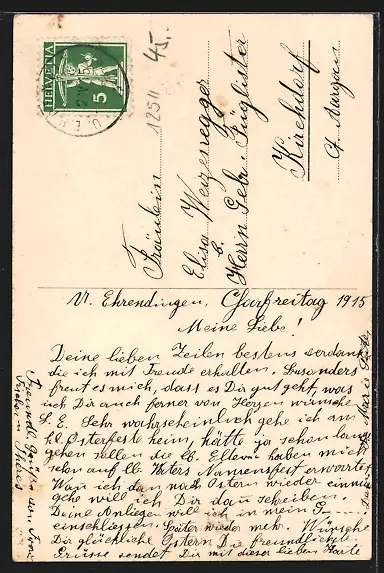 HELVETIA
5
12511
45.-
Fräulein
Elisa Weizenegger
b.
Herrn Gebr. Füglister
Kirchdorf
Ct. Aargau
U. Ehrendingen, Charfreitag 1915
Meine Liebe!
Deine lieben Zeilen bestens verdankt
die ich mit Freude erhalten. Besonders
freut es mich, dass es Dir gut geht, was
ich Dir auch ferner von Herzen wünsche
S. E. Sehr wahrscheinlich gehe ich am
hl. Osterfeste heim, hätte ja schon lange
gehen sollen die lb. Eltern haben mich
schon auf lb. Vaters Namensfest erwartet
Wan ich dan nach Ostern wieder einmal
gehe will ich Dir dan schreiben.
Deine Anliegen will ich in mein G----
einschliessen. Später wieder mehr. Wünsche
Dir glückliche Ostern Die freundlichste
Grüsse sendet Dir mit dieser lieben Karte
Marie
Freundl. Grüsse an Frau